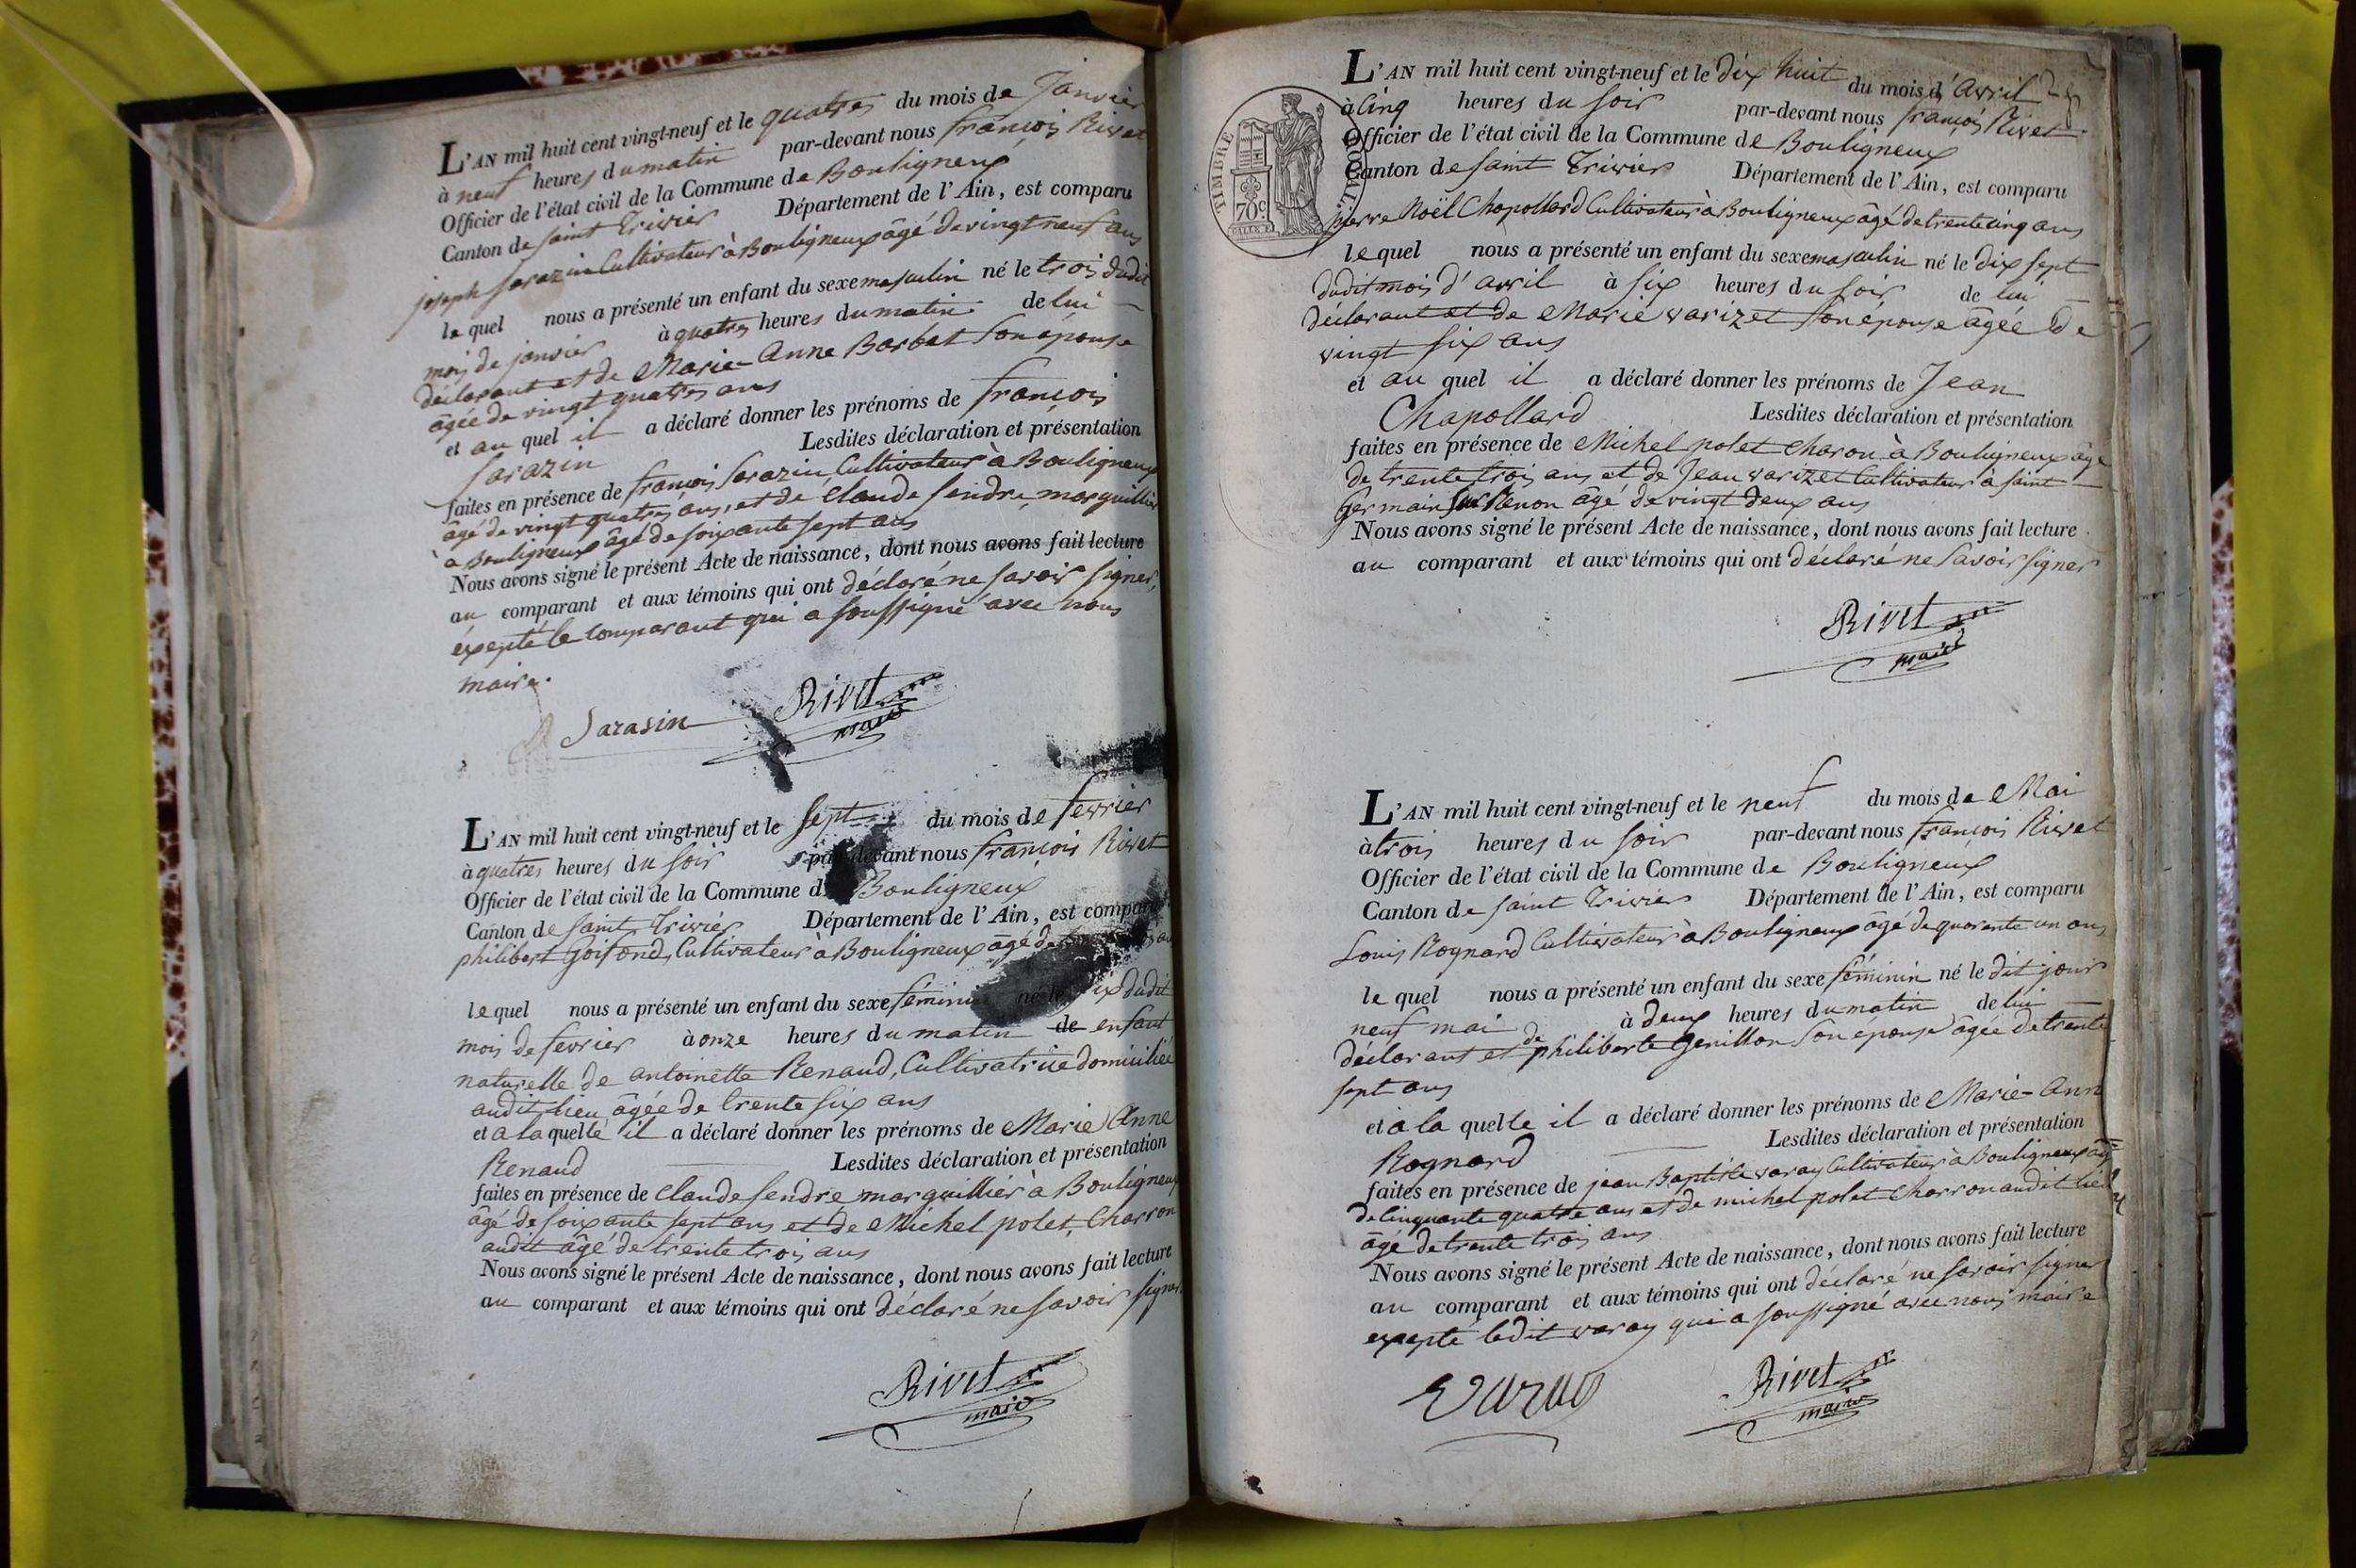 L'AN mil huit cent vingt-neuf et le quatres du mois de Janvier
à neuf heures du matin par-devant nous françois Rivet
Officier de l'état civil de la Commune de Bouligneux
Canton de saint Trivier Département de l'Ain, est comparu
joseph sarazin Cultivateur à Bouligneux âgé de vingt neuf ans
le quel nous a présenté un enfant du sexe masculin né le trois dudit
mois de janvier à quatres heures du matin de lui
déclarant et de Marie-Anne Barbet son épouse
âgée de vingt quatres ans
et au quel il a déclaré donner les prénoms de françois
sarazin Lesdites déclaration et présentation
faites en présence de françois sarazin Cultivateur à Bouligneux
âgé de vingt quatres ans, et de Claude sendre marguillier
à Bouligneux âgé de soixante sept ans
Nous avons signé le présent Acte de naissance, dont nous avons fait lecture
au comparant et aux témoins qui ont déclaré ne savoir signer,
éxepté le comparant qui a soussigné avec nous
maire.
Sarasin Rivet
maire
L'AN mil huit cent vingt-neuf et le sept du mois de fevrier
à quatres heures du soir par-devant nous françois Rivet
Officier de l'état civil de la Commune d Bouligneux
Canton de saint Trivier Département de l'Ain, est comparu
philibert Goifond, Cultivateur à Bouligneux âgé de
le quel nous a présenté un enfant du sexe féminin né le dudit
mois de fevrier à onze heures du matin de enfant
naturelle de antoinette Renaud, Cultivatrice domiciliée
audit lieu âgée de trente six ans
et a la quelle il a déclaré donner les prénoms de Marie Anne
Renaud Lesdites déclaration et présentation
faites en présence de Claude sendre marguillier à Bouligneux
âgé de soixante sept ans et de Michel polet, Charron
audit âgé de trente trois ans
Nous avons signé le présent Acte de naissance, dont nous avons fait lecture
au comparant et aux témoins qui ont déclaré ne savoir signer
Rivet
maire
TIMBRE ROYAL
70c
L'AN mil huit cent vingt-neuf et le dix huit du mois d'Avril
à Cinq heures du soir par-devant nous françois Rivet
Officier de l'état civil de la Commune de Bouligneux
Canton de saint Trivier Département de l'Ain, est comparu
pierre Noël Chapollard Cultivateur à Bouligneux âgé de trente cinq ans
le quel nous a présenté un enfant du sexe masculin né le dix sept
dudit mois d'avril à six heures du soir de lui
déclarant et de Marie varizet son épouse âgée de
vingt six ans
et au quel il a déclaré donner les prénoms de Jean
Chapollard Lesdites déclaration et présentation
faites en présence de Michel polet charon à Bouligneux âgé
de trente trois ans et de Jean varizet Cultivateur à saint
Germain sur Renon âgé de vingt deux ans
Nous avons signé le présent Acte de naissance, dont nous avons fait lecture
au comparant et aux témoins qui ont déclaré ne savoir signer
Rivet
maire
L'AN mil huit cent vingt-neuf et le neuf du mois de Mai
à trois heures du soir par-devant nous françois Rivet
Officier de l'état civil de la Commune de Bouligneux
Canton de saint Trivier Département de l'Ain, est comparu
Louis Rognard Cultivateur à Bouligneux âgé de quarente un ans
le quel nous a présenté un enfant du sexe féminin né le dit jour
neuf mai à deux heures du matin de lui
déclarant et de philiberte Genillon son épouse âgée de trente
sept ans
et à la quelle il a déclaré donner les prénoms de Marie-Ann
Rognard Lesdites déclaration et présentation
faites en présence de jean Baptiste varay Cultivateur à Bouligneux âgé
de cinquante quatre ans et de michel polet Charron audit lieu
âgé de trente trois ans
Nous avons signé le présent Acte de naissance, dont nous avons fait lecture
au comparant et aux témoins qui ont déclaré ne savoir signer
exepté ledit varay qui a soussigné avec nous maire
Rivet
maire